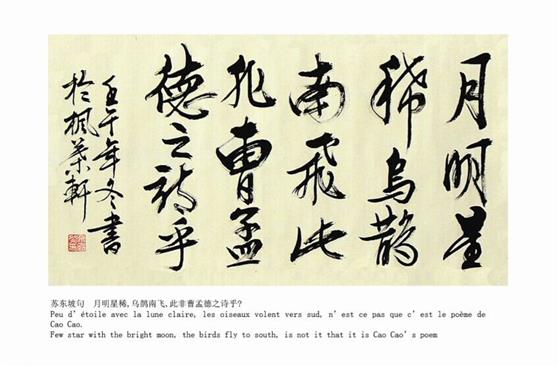 月明星
稀乌鹊
南飞此
非曹孟
德之诗乎
壬午年冬书
於枫叶轩
苏东坡句　月明星稀,乌鹊南飞,此非曹孟德之诗乎?
Peu d'étoile avec la lune claire, les oiseaux volent vers sud, n'est ce pas que c'est le poème de
Cao Cao.
Few star with the bright moon, the birds fly to south, is not it that it is Cao Cao's poem